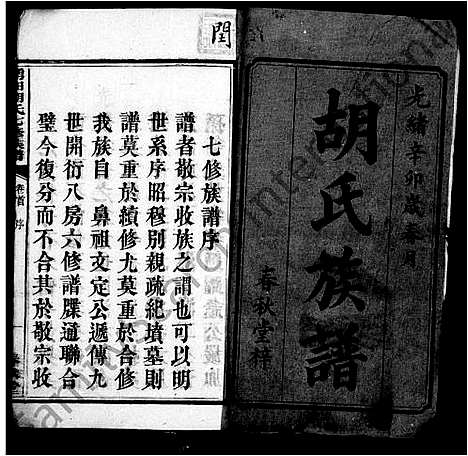 光緒辛卯歲春月
胡氏族譜
春秋堂梓
閏
七修族譜序
譜者敬宗收族之謂也可以明
世系序昭穆別親疏紀墳墓則
譜莫重於續修尤莫重於合修
我族自　鼻祖文定公遞傳九
世開衍八房六修譜牒通聯合
璧今復分而不合其於敬宗收
卷首　序